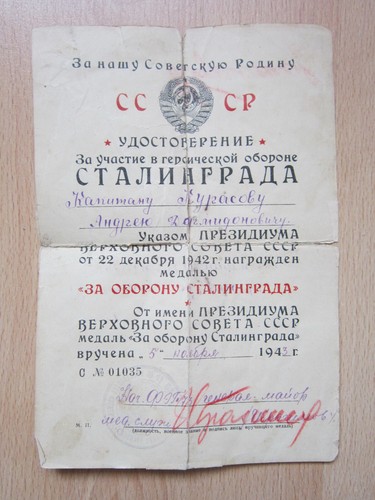 За нашу Советскую Родину
СС СР
★ УДОСТОВЕРЕНИЕ ★
За участие в героической обороне
СТАЛИНГРАДА
Капитану Курасову
Андрею Дормидоновичу.
Указом ПРЕЗИДИУМА
ВЕРХОВНОГО СОВЕТА СССР
от 22 декабря 1942 г. награжден
медалью
«ЗА ОБОРОНУ СТАЛИНГРАДА»
От имени ПРЕЗИДИУМА
ВЕРХОВНОГО СОВЕТА СССР
медаль «За оборону Сталинграда»
вручена „5" ноября 1943 г.
С № 01035
майор
мед. служ
М. П.
(должность, военное звание и подпись лица, вручившего медаль)